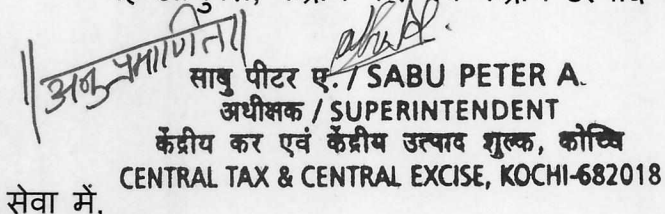 ||अनुप्रमाणित||
साबु पीटर ए. / SABU PETER A.
अधीक्षक / SUPERINTENDENT
केंद्रीय कर एवं केंद्रीय उत्पाद शुल्क, कोच्चि
CENTRAL TAX & CENTRAL EXCISE, KOCHI-682018
सेवा में,